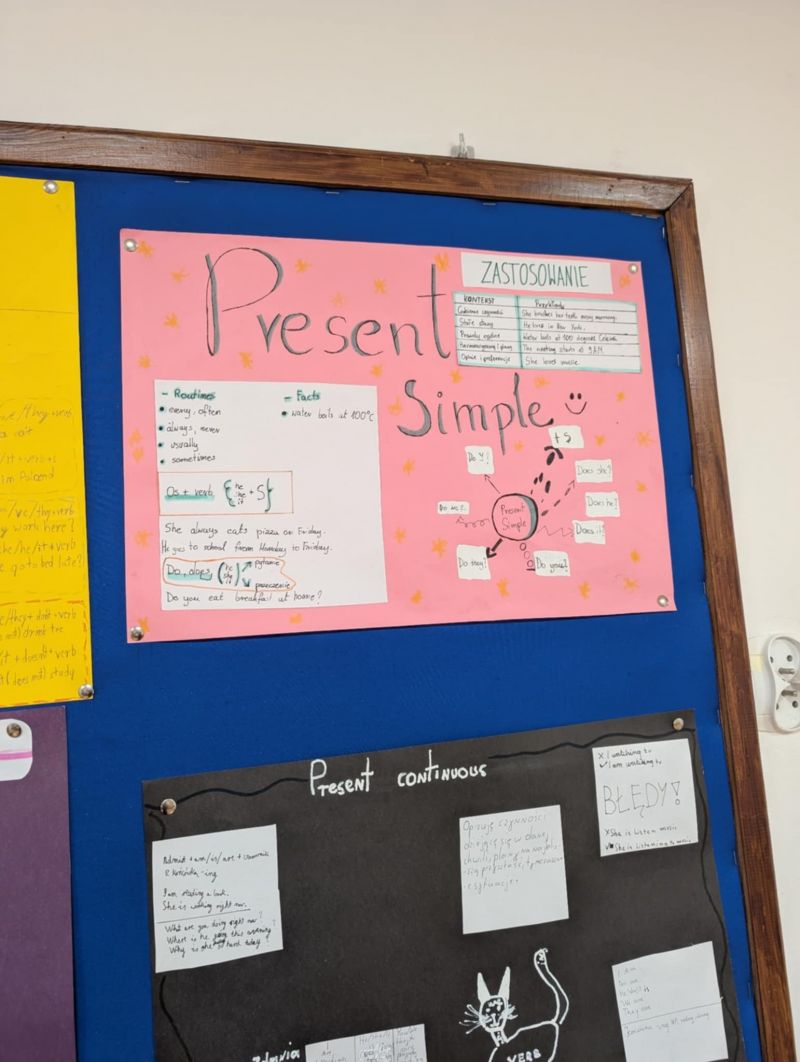 Present
Simple
ZASTOSOWANIE
KONTEKST Przykłady
Codzienne czynności She brushes her teeth every morning.
Stałe stany He lives in New York.
Prawdy ogólne Water boils at 100 degrees Celsius.
Harmonogramy i plany The meeting starts at 9 A.M.
Opinie i preferencje She loves music.
- Routines
every, often
always, never
usually
sometimes
- Facts
water boils at 100°C
Os + verb { he she it + S }
She always eats pizza on Friday.
He goes to school from Monday to Friday.
Do, does ( he she it ) pytanie
przeczenie
Do you eat breakfast at home?
+ S
Do I?
Does she?
Do we?
Present
Simple
Does he?
Does it?
Do they?
Do you?
we/they + verb
/it + verb +
in Poland
/we/they + verb
work here?
she/he/it + verb
go to bed late?
/they + don't + verb
not) drink tea
it + doesn't + verb
(does not) study
Present continuous
X I watching tv
✓ I am watching tv
BŁĘDY!
X She is listen music
✓ She is listening to music
+ am/is/are + czasownik
z końcówką -ing
I am reading a book.
She is working right now.
What are you doing right now?
Where is he going this evening?
Why is she so hard today?
Opisuję czynności
dziejące się w danej
chwili, plany na najbliż-
szą przyszłość, tymczasow-
e sytuacje.
I am
You are
He/she/it is
We are
They are
VERB